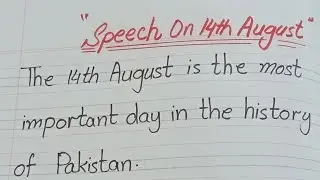 "Speech On 14th August"
The 14th August is the most
important day in the history
of Pakistan.